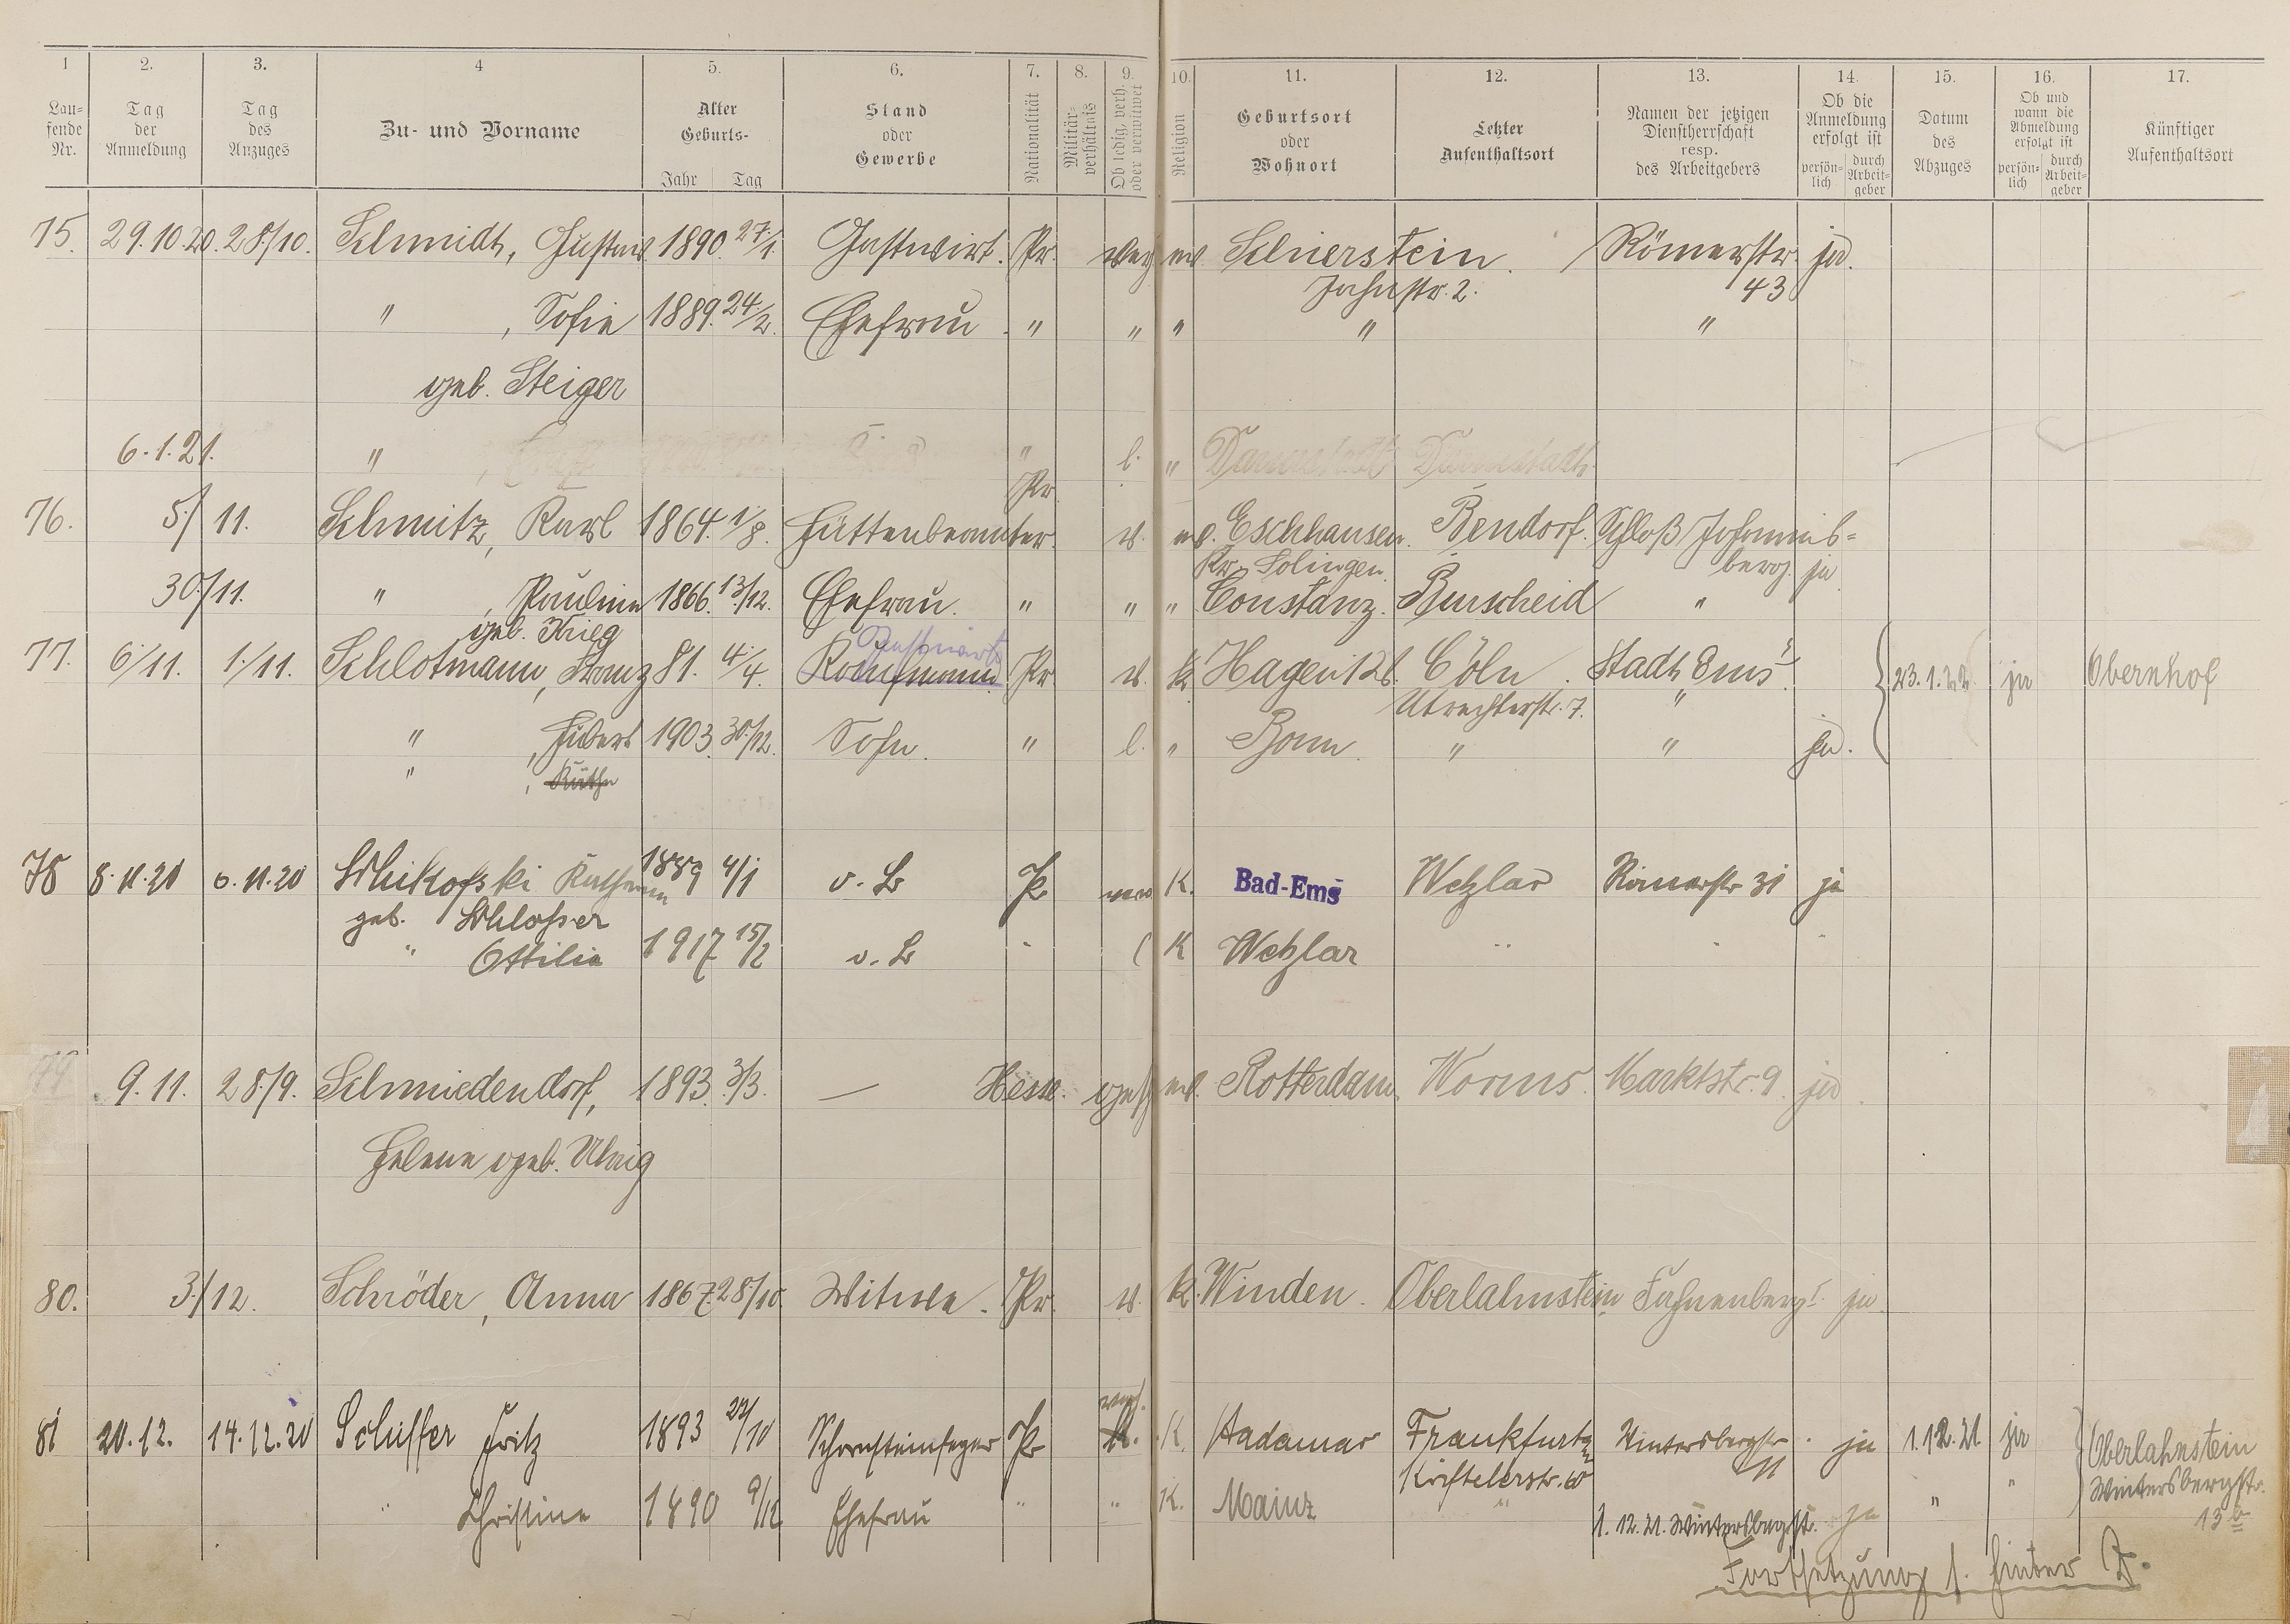 1 2. 3. 4 5. 6. 7. 8. 9. 10. 11. 12. 13. 14. 15. 16. 17.
Lau-
fende
Nr.
Tag
der
Anmeldung
Tag
des
Anzuges
Zu- und Vorname
Alter
Geburts-
Jahr Tag
Stand
oder
Gewerbe
Nationalität
Militär-
verhältnis
Ob ledig, verh.
oder verwitwet
Religion
Geburtsort
oder
Wohnort
Letzter
Aufenthaltsort
Namen der jetzigen
Dienstherrschaft
resp.
des Arbeitgebers
Ob die
Anmeldung
erfolgt ist
persön-
lich
durch
Arbeit-
geber
Datum
des
Abzuges
Ob und
wann die
Abmeldung
erfolgt ist
persön-
lich
durch
Arbeit-
geber
Künftiger
Aufenthaltsort
75. 29.10.20. 28./10. Schmidt, Gustav 1890. 27./1. Gastwirt. Pr. ev. Schierstein. Römerstr. ja.
Jahnstr. 2. 43
" , Sofie 1889. 24/2. Ehefrau. " " " " "
geb. Steiger
6.1.21. " " l. " Darmstadt Darmstadt
Pr.
76. 5./11. Schmitz, Karl 1864. 1/8. Hüttenbeamter. v. ev. Eschhausen. Bendorf. Schloß Johannis-
Kr. Solingen. berg. ja
30./11. " , Pauline 1866. 13/12. Ehefrau. " " " Constanz. Burscheid "
geb. Krieg
Gastwirt
77. 6./11. 1./11. Schlotmann, Franz 81. 4./4. Kaufmann Pr. v. k. Hagen i. Cöln. Stadt Ems 23.1.22 ja Obernhof
Utrechterstr. 7. "
" , Hubert 1903. 30./12. Sohn. " l. " Bonn. " " ja.
" , Käthe
78 8.11.20 6.11.20 Schikofski Katharina 1889 4/1 o. B Pr. K. Bad-Ems Wetzlar Römerstr 31 ja
geb. Schlosser
" Ottilie 1917 15/2 o. B " l K Wetzlar " " "
79 9.11. 28./9. Schmiedendorf, 1893. 3/3. — Hesse. gesch ev. Rotterdam. Worms. Marktstr. 9. ja
Helene geb. Uhrig
80. 3./12. Schröder, Anna 1867. 28./10. Witwe. Pr. w. k. Winden. Oberlahnstein Fahnenberg ja
verh.
81 20.12. 14.12.20 Schiffer Fritz 1893 22/10 Schornsteinfeger Pr K. Hadamar Frankfurt Wintersbergstr ja 1.12.21 ja Oberlahnstein
11
" Christine 1890 9/12 Ehefrau " " K. Mainz " " " Wintersbergstr.
1.12.21. Wintersbergstr. ja 13 b
Fortsetzung s. hinter Z.